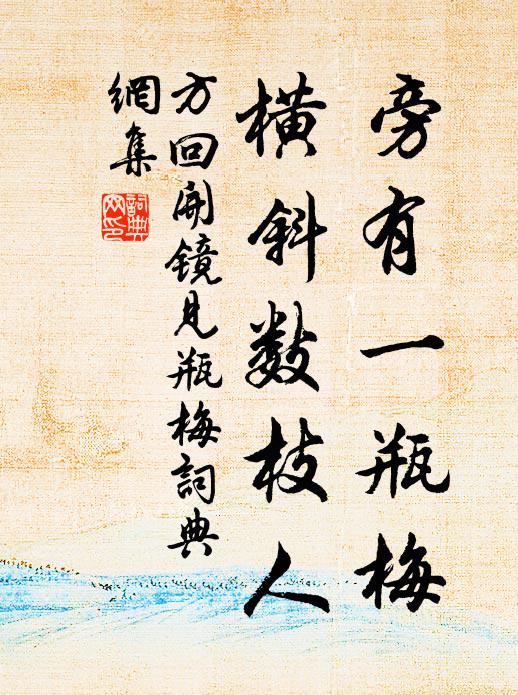 旁有一瓶梅
橫斜數枝人
方回開鏡見瓶梅詞典
網集
詞典
网印